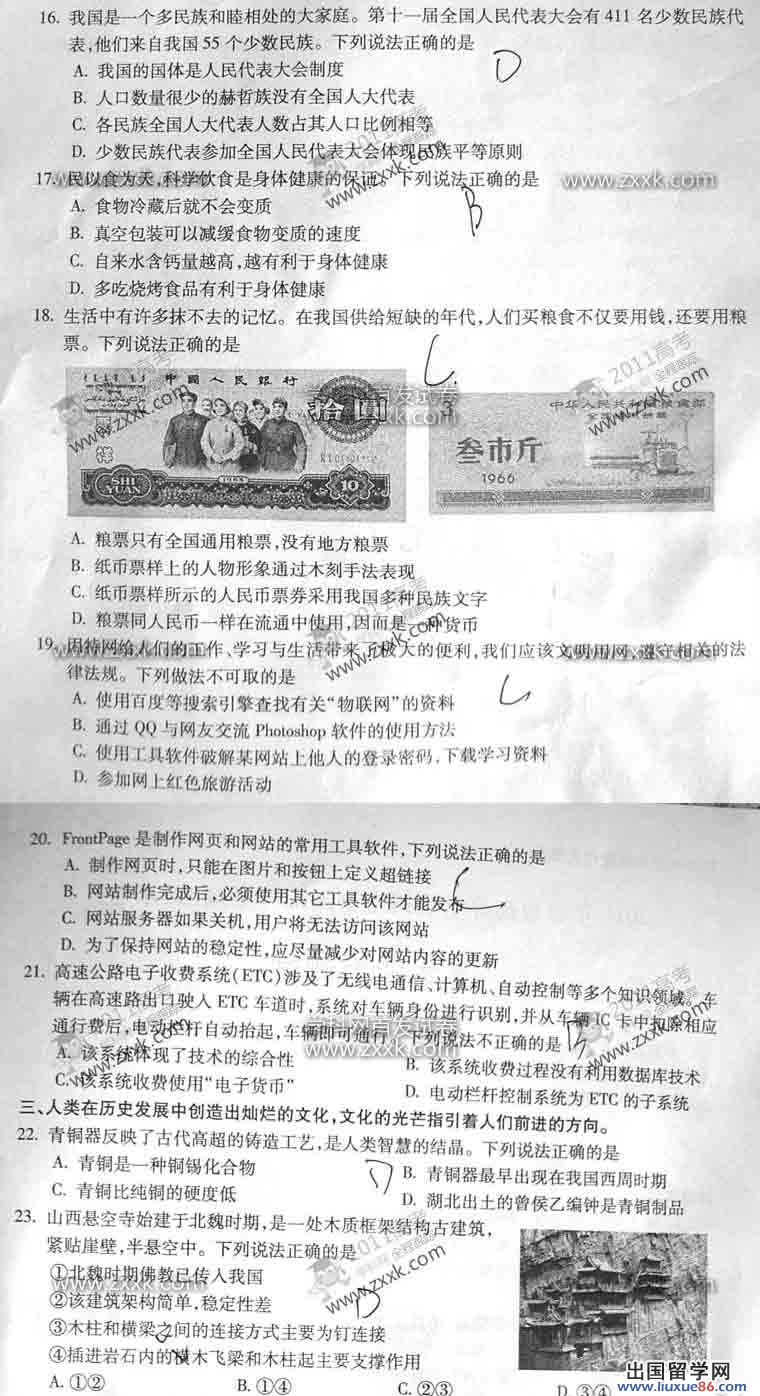 16. 我国是一个多民族和睦相处的大家庭。第十一届全国人民代表大会有 411 名少数民族代
表,他们来自我国 55 个少数民族。下列说法正确的是
A. 我国的国体是人民代表大会制度
D
B. 人口数量很少的赫哲族没有全国人大代表
C. 各民族全国人大代表人数占其人口比例相等
D. 少数民族代表参加全国人民代表大会体现民族平等原则
17. 民以食为天,科学饮食是身体健康的保证。下列说法正确的是
www.zxxk.com
A. 食物冷藏后就不会变质
B
B. 真空包装可以减缓食物变质的速度
C. 自来水含钙量越高,越有利于身体健康
D. 多吃烧烤食品有利于身体健康
18. 生活中有许多抹不去的记忆。在我国供给短缺的年代,人们买粮食不仅要用钱,还要用粮
票。下列说法正确的是
C
中国人民银行
拾圆
SHI YUAN
1965
10
叁市斤
1966
A. 粮票只有全国通用粮票,没有地方粮票
B. 纸币票样上的人物形象通过木刻手法表现
C. 纸币票样所示的人民币票券采用我国多种民族文字
D. 粮票同人民币一样在流通中使用,因而是一种货币
19. 因特网给人们的工作、学习与生活带来了极大的便利,我们应该文明用网,遵守相关的法
律法规。下列做法不可取的是
C
A. 使用百度等搜索引擎查找有关“物联网”的资料
B. 通过 QQ 与网友交流 Photoshop 软件的使用方法
C. 使用工具软件破解某网站上他人的登录密码,下载学习资料
D. 参加网上红色旅游活动
20. FrontPage 是制作网页和网站的常用工具软件,下列说法正确的是
A. 制作网页时,只能在图片和按钮上定义超链接
C
B. 网站制作完成后,必须使用其它工具软件才能发布
C. 网站服务器如果关机,用户将无法访问该网站
D. 为了保持网站的稳定性,应尽量减少对网站内容的更新
21. 高速公路电子收费系统(ETC)涉及了无线电通信、计算机、自动控制等多个知识领域。车
辆在高速路出口驶入 ETC 车道时,系统对车辆身份进行识别,并从车辆 IC 卡中扣除相应
通行费后,电动栏杆自动抬起,车辆即可通行。下列说法不正确的是
B
A. 该系统体现了技术的综合性
B. 该系统收费过程没有利用数据库技术
C. 该系统收费使用“电子货币”
D. 电动栏杆控制系统为 ETC 的子系统
三、人类在历史发展中创造出灿烂的文化,文化的光芒指引着人们前进的方向。
22. 青铜器反映了古代高超的铸造工艺,是人类智慧的结晶。下列说法正确的是
A. 青铜是一种铜锡化合物
D
B. 青铜器最早出现在我国西周时期
C. 青铜比纯铜的硬度低
D. 湖北出土的曾侯乙编钟是青铜制品
23. 山西悬空寺始建于北魏时期,是一处木质框架结构古建筑,
紧贴崖壁,半悬空中。下列说法正确的是
①北魏时期佛教已传入我国
②该建筑架构简单,稳定性差
B
③木柱和横梁之间的连接方式主要为钉连接
④插进岩石内的横木飞梁和木柱起主要支撑作用
A. ①②
B. ①④
C. ②③
D. ③④
出国留学网
www.liuxue86.com